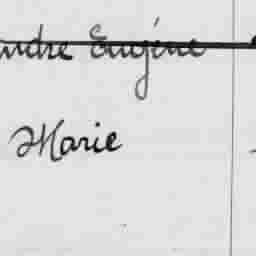 andre Eugène
Marie